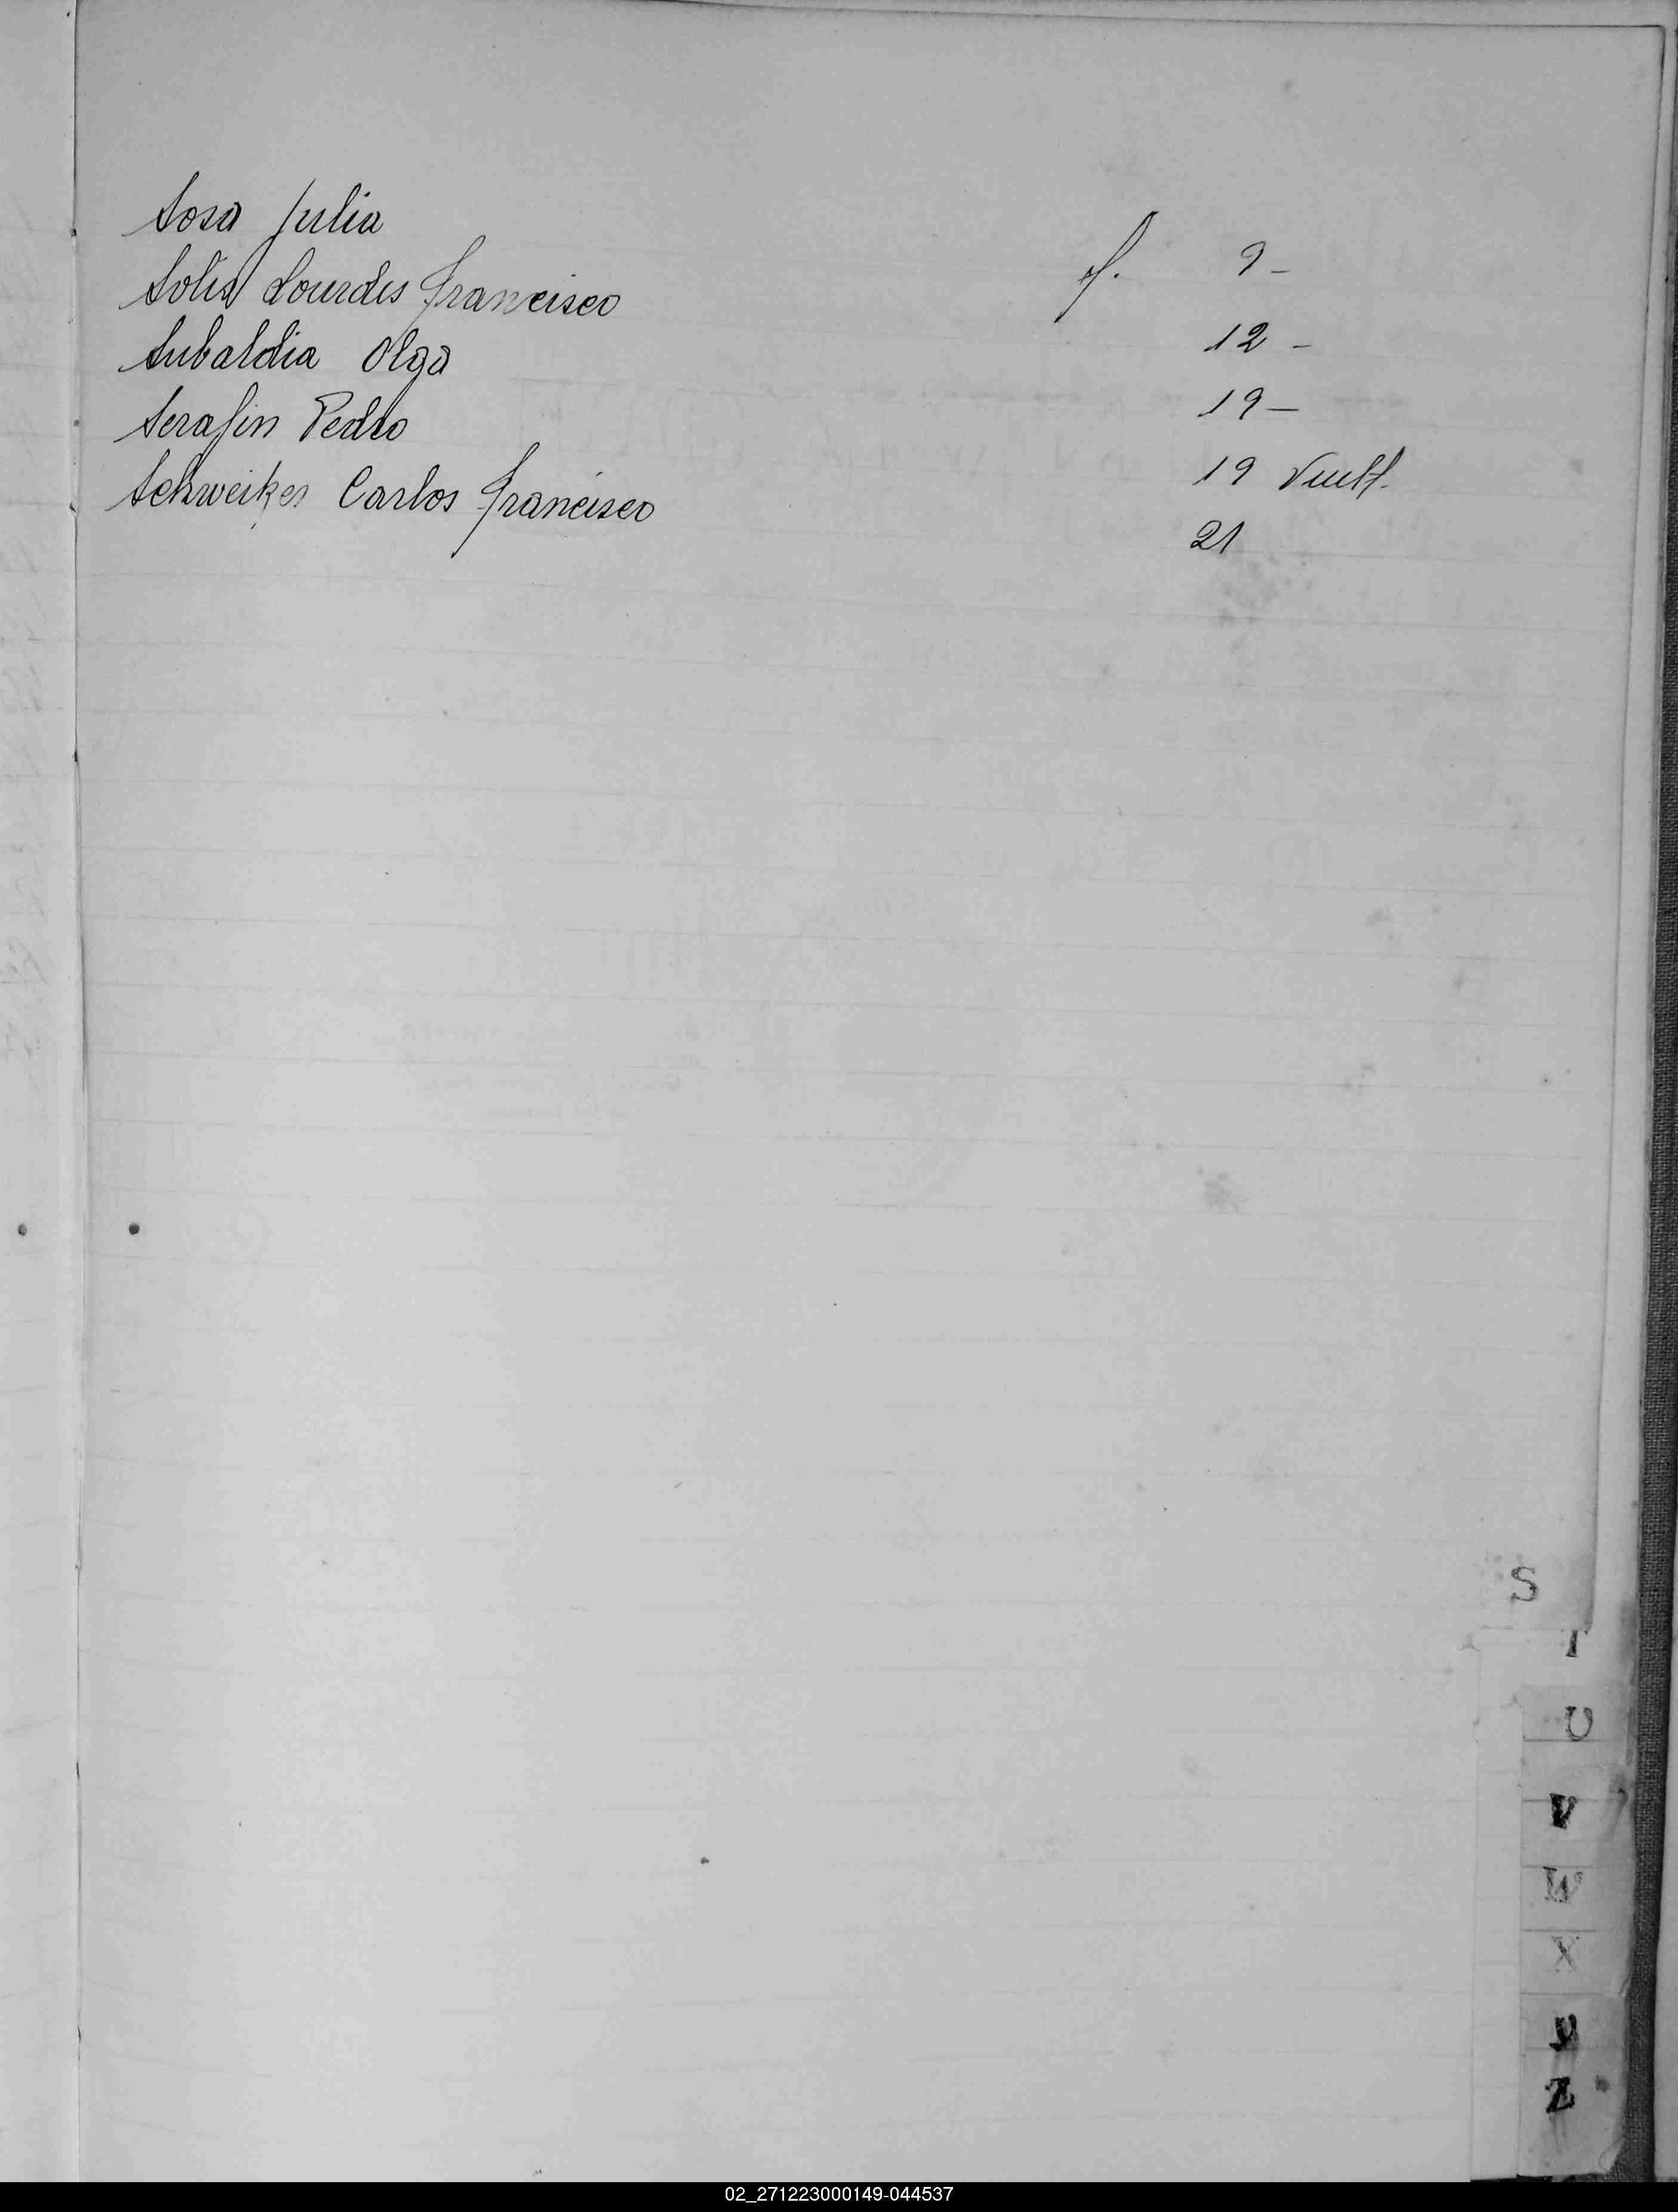 Sosa Julia f. 9 -
Solis Lourdes Francisco 12 -
Subaldia Olga 19 -
Serafin Pedro 19 Vuelt.
Schweiker Carlos Francisco 21
S
T
U
V
W
X
Y
Z
02_271223000149-044537